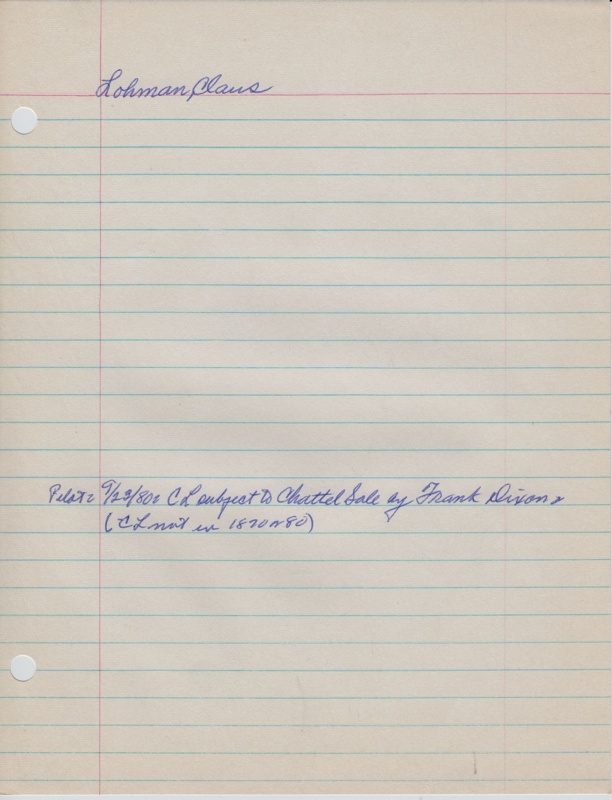 Lohman, Claus
Pilot: 9/23/80: CL subject to Chattel Sale by Frank Dixon.
(CL not in 1870 or 80)